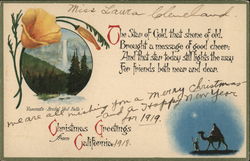 Miss Laura Cleveland.
The Star of Gold, that shone of old,
Brought a message of good cheer;
And that star today still lights the way
For friends both near and dear.
Yosemite's Bridal Veil Falls
we are all wishing you a merry Christmas
and a Happy New Year
for 1919.
Christmas Greetings
from
California, 1918.